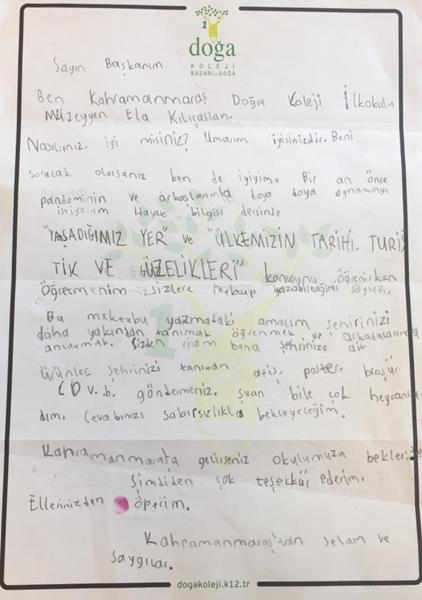 1
doğa
KOLEJİ
BAŞARI=DOĞA
Sayın Başkanım
Ben Kahramanmaraş Doğa Koleji İlkokulu
Müzeyyen Ela Kılıçaslan.
Nasılsınız iyi misiniz? Umarım iyisinizdir. Beni
soracak olursanız ben de iyiyim. Bir an önce
pandeminin ve arkaşlarımla doya doya oynamayı
istiyorum Hayat bilgisi dersinde
"YAŞADIĞIMIZ YER" ve "ÜLKEMİZİN TARİHİ TURİS
TİK VE GÜZELİKLERİ" konuynu öğrenirken
Öğretmenim sizlere mektup yazabileceğimi söyledi.
Bu mektubu yazmadaki amacım şehrinizi
daha yakından tanımak öğrenmek ve arkadaşlarıma
anlatmak. Sizden ricam bana şehrinize ait
ürünler şehrinizi tanıtan afiş, poster, broşür
CD v.b. göndermeniz. Şuan bile çok heycanlı
dım. Cevabınızı sabırsızlıkla bekleyeceğim.
Kahramanmaraşa gelirseniz okulumuza bekleriz
Şimdiden çok teşekkür ederim.
Ellerinizden öperim.
Kahramanmaraş'tan selam ve
saygılar.
dogakoleji.k12.tr